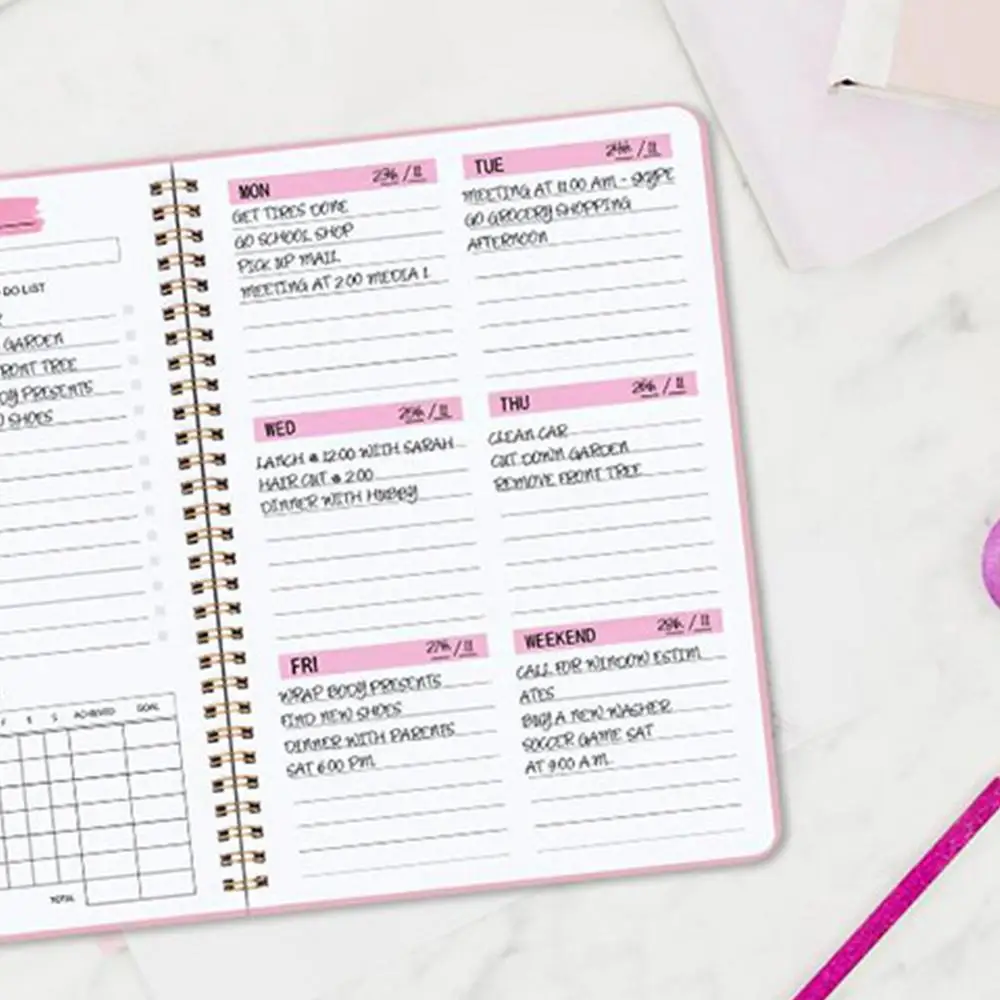 DO LIST
GARDEN
FRONT TREE
PRESENTS
SHOES
F S S ACHIEVED GOAL
TOTAL
MON 23th / 11
GET TIRES DONE
GO SCHOOL SHOP
PICK UP MAIL
MEETING AT 2:00 MEDIA 1
TUE 24th / 11
MEETING AT 11:00 AM - SKYPE
GO GROCERY SHOPPING
AFTERNOON
WED 25th / 11
LANCH @ 12:00 WITH SARAH
HAIR CUT @ 2:00
DINNER WITH HUBBY
THU 26th / 11
CLEAN CAR
CUT DOWN GARDEN
REMOVE FRONT TREE
FRI 27th / 11
WRAP BODY PRESENTS
FIND NEW SHOES
DINNER WITH PARENTS
SAT 6:00 PM
WEEKEND 28th / 11
CALL FOR WINDOW ESTIM
ATES
BUY A NEW WASHER
SOCCER GAME SAT
AT 9:00 A.M.